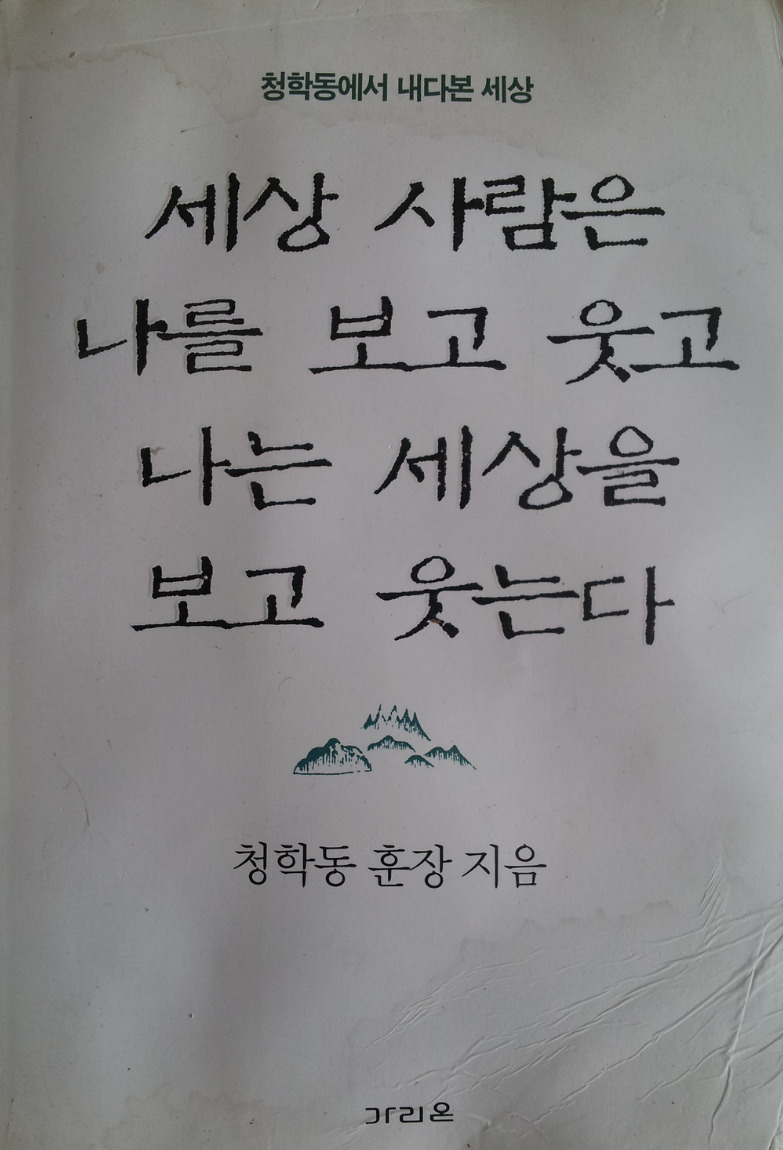 청학동에서 내다본 세상
세상 사람은
나를 보고 웃고
나는 세상을
보고 웃는다
청학동 훈장 지음
가리온